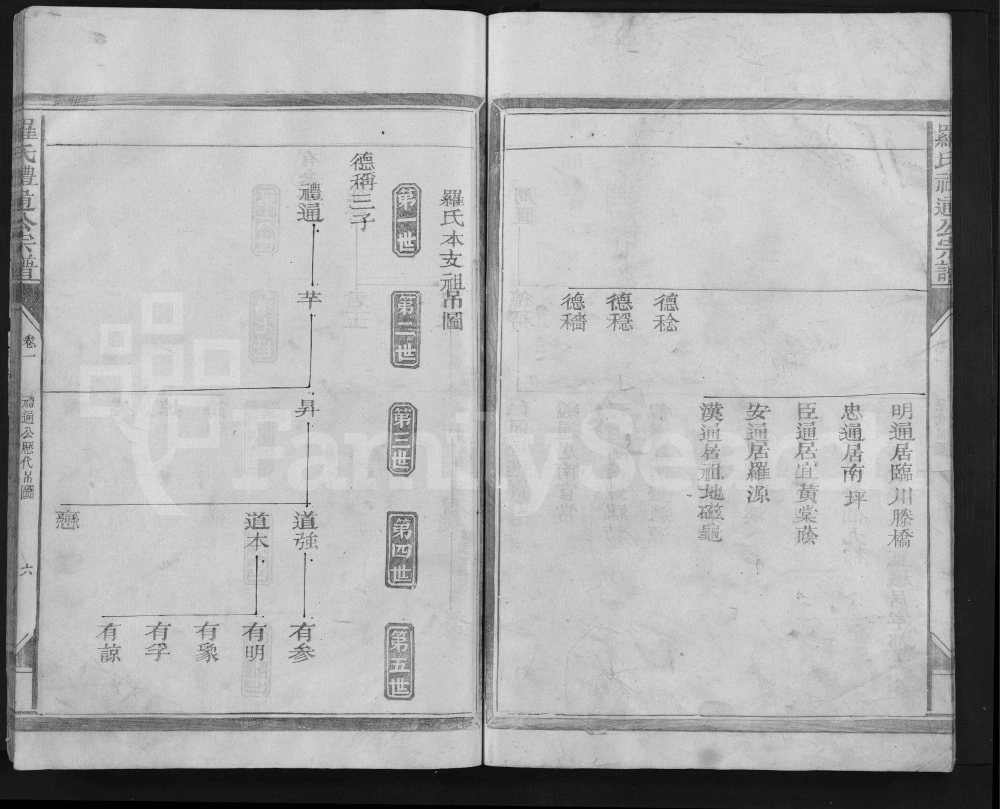 羅氏禮通公宗譜
德稔
德穩
德穡
明通居臨川滕橋
忠通居南坪
臣通居宜黃棠蔭
安通居羅源
漢通居祖地磁龜
羅氏本支祖吊圖
第一世
第二世
第三世
第四世
第五世
德稱三子
禮通
芉
昇
道強
道本
戀
有參
有明
有象
有孚
有諒
羅氏禮通公宗譜
卷一
禮通公歷代吊圖
六
FamilySearch